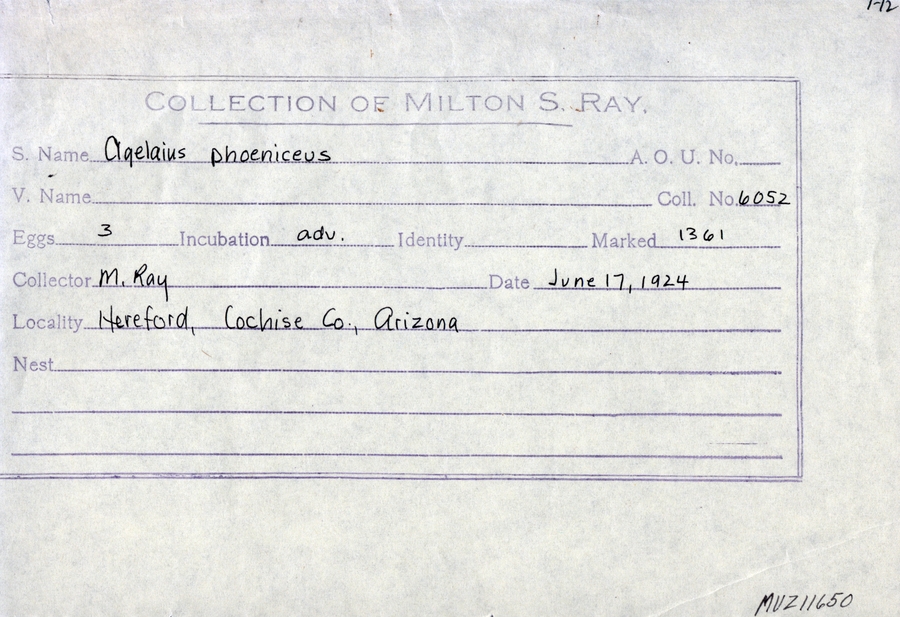 1-12
COLLECTION OF MILTON S. RAY.
S. Name Agelaius phoeniceus A. O. U. No.
V. Name Coll. No. 6052
Eggs 3 Incubation adv. Identity Marked 1361
Collector M. Ray Date June 17, 1924
Locality Hereford, Cochise Co., Arizona
Nest
MVZ11650